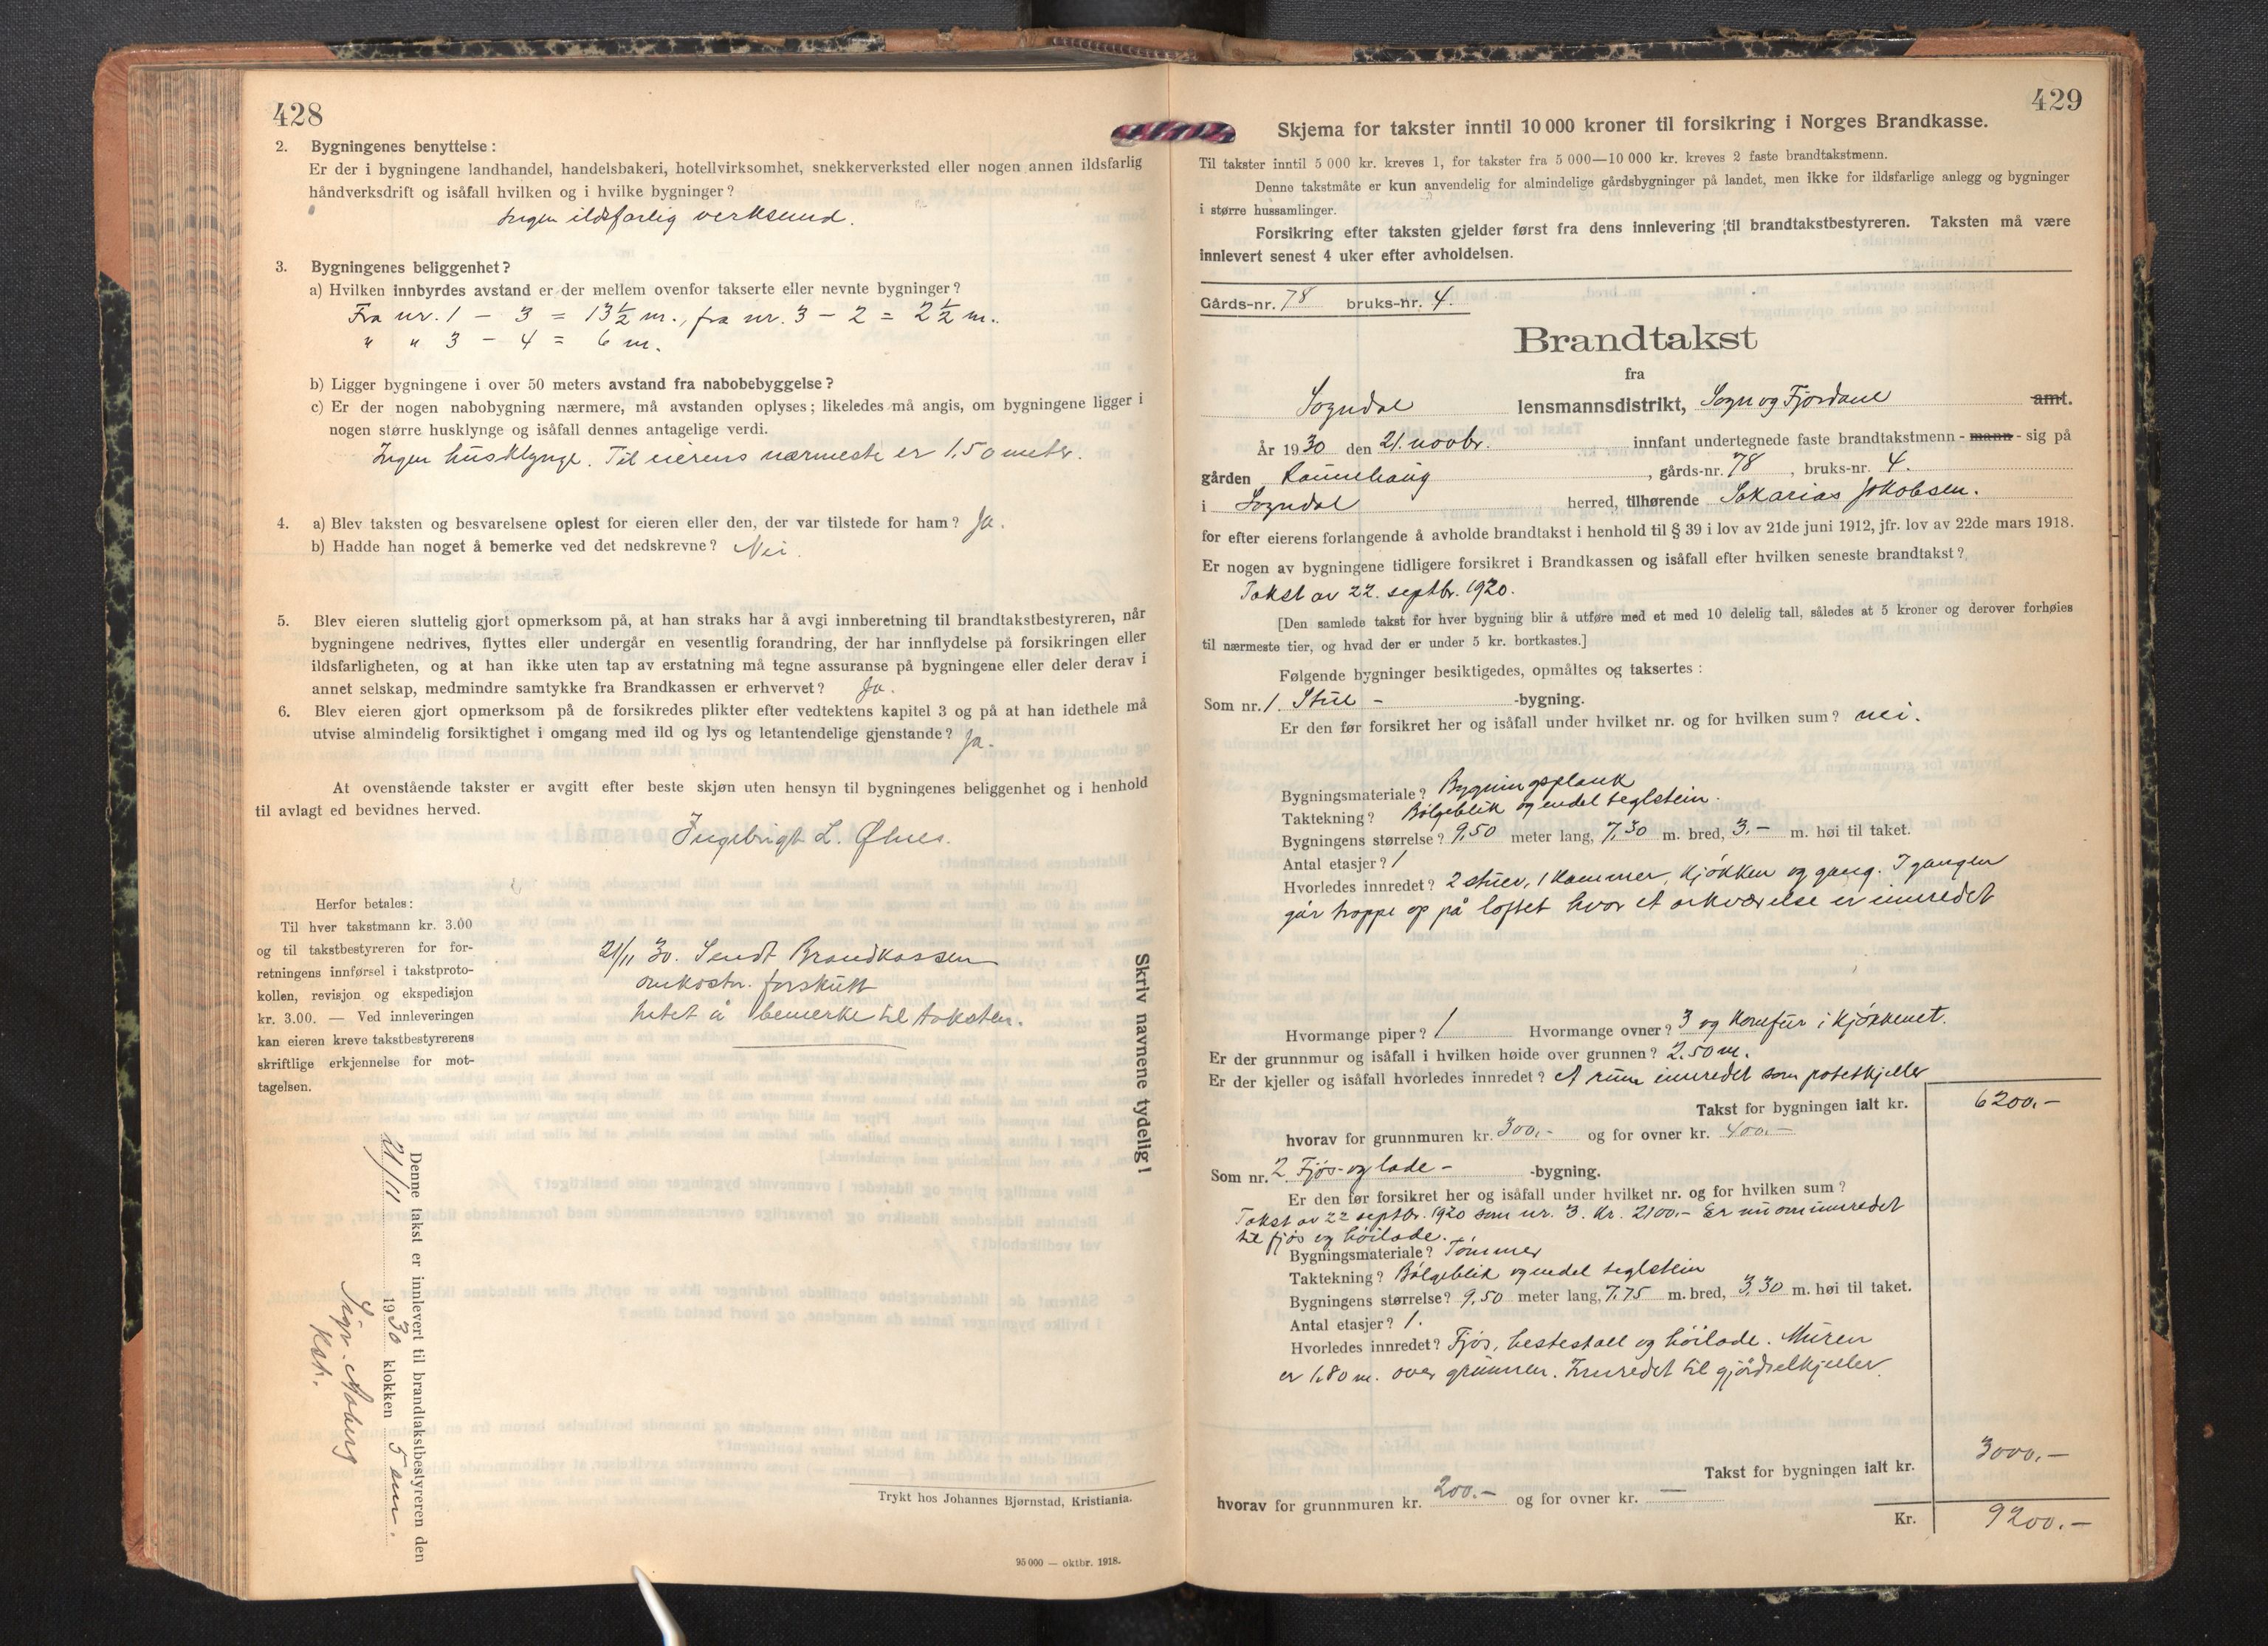 428
2. Bygningenes benyttelse :
Er der i bygningene landhandel, handelsbakeri, hotellvirksomhet, snekkerverksted eller nogen annen ildsfarlig
håndverksdrift og isåfall hvilken og i hvilke bygninger?
Ingen ildsfarlig verksemd.
3. Bygningenes beliggenhet?
a) Hvilken innbyrdes avstand er der mellem ovenfor takserte eller nevnte bygninger?
Fra nr. 1 - 3 = 13½ m., fra nr. 3 - 2 = 2½ m.
" " 3 - 4 = 6 m.
b) Ligger bygningene i over 50 meters avstand fra nabobebyggelse?
c) Er der nogen nabobygning nærmere, må avstanden oplyses; likeledes må angis, om bygningene ligger i
nogen større husklynge og isåfall dennes antagelige verdi.
Ingen husklynge. Til eierens nærmeste er 1,50 meter.
4. a) Blev taksten og besvarelsene oplest for eieren eller den, der var tilstede for ham? Ja.
b) Hadde han noget å bemerke ved det nedskrevne? Nei.
5. Blev eieren sluttelig gjort opmerksom på, at han straks har å avgi innberetning til brandtakstbestyreren, når
bygningene nedrives, flyttes eller undergår en vesentlig forandring, der har innflydelse på forsikringen eller
ildsfarligheten, og at han ikke uten tap av erstatning må tegne assuranse på bygningene eller deler derav i
annet selskap, medmindre samtykke fra Brandkassen er erhvervet? Ja.
6. Blev eieren gjort opmerksom på de forsikredes plikter efter vedtektens kapitel 3 og på at han idethele må
utvise almindelig forsiktighet i omgang med ild og lys og letantendelige gjenstande? Ja.
At ovenstående takster er avgitt efter beste skjøn uten hensyn til bygningenes beliggenhet og i henhold
til avlagt ed bevidnes herved.
Ingebrigt L. Ølnes.
Herfor betales:
Til hver takstmann kr. 3.00
og til takstbestyreren for for-
retningens innførsel i takstproto-
kollen, revisjon og ekspedisjon
kr. 3.00. — Ved innleveringen
kan eieren kreve takstbestyrerens
skriftlige erkjennelse for mot-
tagelsen.
21/11 30. Sendt Brandkassen
omkostn. forskutt
Intet å bemerke til taksten.
Skriv navnene tydelig!
Denne takst er innlevert til brandtakstbestyreren den
21/11 1930 klokken 5 em.
Sigv. Aaberg
Kst.
Trykt hos Johannes Bjørnstad, Kristiania.
95 000 — oktbr. 1918.
429
Skjema for takster inntil 10 000 kroner til forsikring i Norges Brandkasse.
Til takster inntil 5 000 kr. kreves 1, for takster fra 5 000—10 000 kr. kreves 2 faste brandtakstmenn.
Denne takstmåte er kun anvendelig for almindelige gårdsbygninger på landet, men ikke for ildsfarlige anlegg og bygninger
i større hussamlinger.
Forsikring efter taksten gjelder først fra dens innlevering til brandtakstbestyreren. Taksten må være
innlevert senest 4 uker efter avholdelsen.
Gårds-nr. 78 bruks-nr. 4.
Brandtakst
fra
Sogndal lensmannsdistrikt, Sogn og Fjordane amt.
År 1930 den 21. novbr. innfant undertegnede faste brandtakstmenn - mann - sig på
gården Raunehaug, gårds-nr. 78, bruks-nr. 4.
i Sogndal herred, tilhørende Sakarias Jakobsen.
for efter eierens forlangende å avholde brandtakst i henhold til § 39 i lov av 21de juni 1912, jfr. lov av 22de mars 1918.
Er nogen av bygningene tidligere forsikret i Brandkassen og isåfall efter hvilken seneste brandtakst?
Takst av 22. septbr. 1920.
[Den samlede takst for hver bygning blir å utføre med et med 10 delelig tall, således at 5 kroner og derover forhøies
til nærmeste tier, og hvad der er under 5 kr. bortkastes.]
Følgende bygninger besiktigedes, opmåltes og taksertes :
Som nr. 1. Stue - -bygning.
Er den før forsikret her og isåfall under hvilket nr. og for hvilken sum? nei.
Bygningsmateriale? Bygningsplank
Taktekning? Bølgeblik og endel teglstein.
Bygningens størrelse? 9,50 meter lang, 7,30 m. bred, 3,- m. høi til taket.
Antal etasjer? 1
Hvorledes innredet? 2 stuer, 1 kammer, kjøkken og gang. I gangen
går trappe op på loftet hvor et arkværelse er innredet
Hvormange piper? 1 Hvormange ovner? 3 og komfur i kjøkkenet.
Er der grunnmur og isåfall i hvilken høide over grunnen? 2.50 m.
Er der kjeller og isåfall hvorledes innredet? et rum innredet som potetkjeller
Takst for bygningen ialt kr. 6200,-
hvorav for grunnmuren kr. 300,- og for ovner kr. 400,-
Som nr. 2 Fjøs- og lade - -bygning.
Er den før forsikret her og isåfall under hvilket nr. og for hvilken sum?
Takst av 22 septbr. 1920 som nr. 3. Kr. 2100.- Er nu ominnredet
til fjøs og høilade.
Bygningsmateriale? Tømmer
Taktekning? Bølgeblik og endel teglstein
Bygningens størrelse? 9,50 meter lang, 7,75 m. bred, 3,30 m. høi til taket.
Antal etasjer? 1.
Hvorledes innredet? Fjøs, hestestall og høilade. Muren
er 1.80 m. over grunnen. Innredet til gjødselkjeller.
Takst for bygningen ialt kr. 3000,-
hvorav for grunnmuren kr. 200.- og for ovner kr. —
Kr. 9200.-